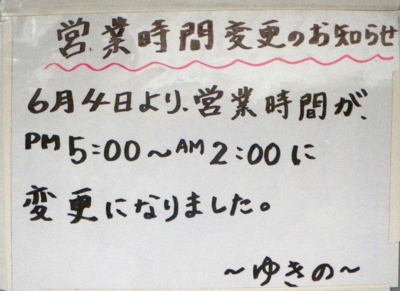 営業時間変更のお知らせ
6月4日より、営業時間が、
PM5:00～AM2:00に
変更になりました。
～ゆきの～